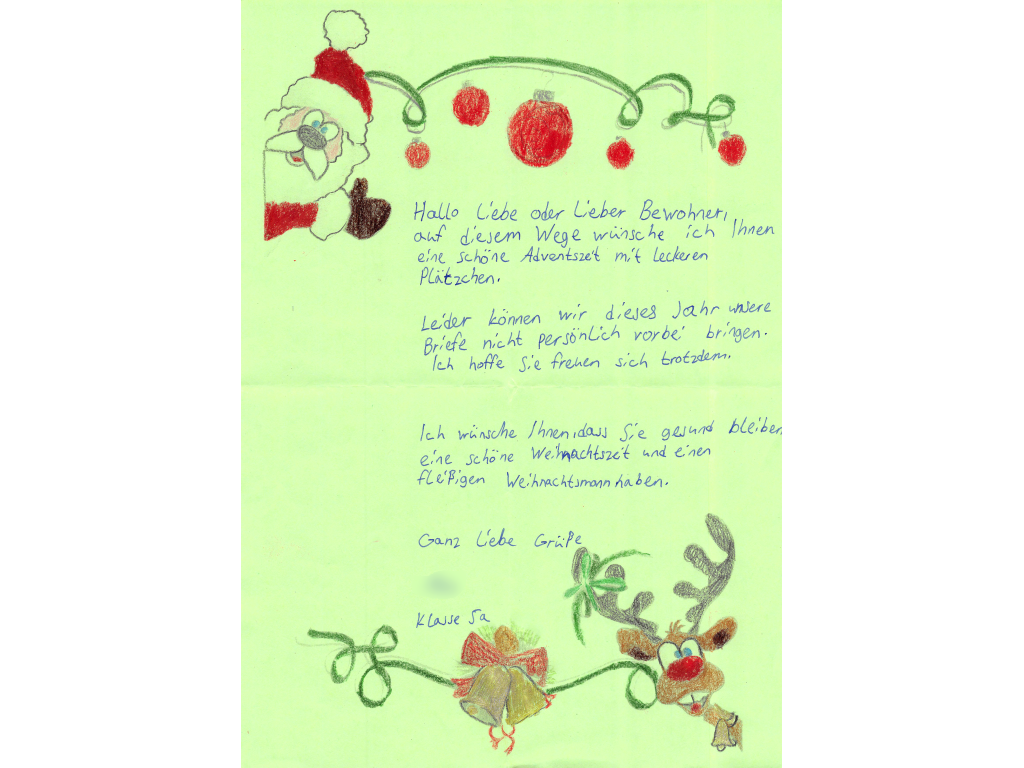 Hallo Liebe oder Lieber Bewohner,
auf diesem Wege wünsche ich Ihnen
eine schöne Adventszeit mit leckeren
Plätzchen.
Leider können wir dieses Jahr unsere
Briefe nicht persönlich vorbei bringen.
Ich hoffe Sie freuen sich trotzdem.
Ich wünsche Ihnen, dass Sie gesund bleiben
eine schöne Weihnachtszeit und einen
fleißigen Weihnachtsmann haben.
Ganz Liebe Grüße
Klasse 5a